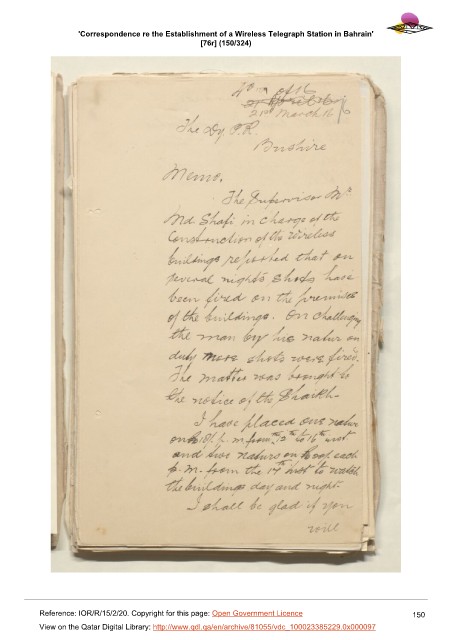 'Correspondence re the Establishment of a Wireless Telegraph Station in Bahrain'
[76r] (150/324)
of 16
21st March 16
The Dy P.R.
Bushire
Memo.
The Supervisor Mr
Md Shafi in charge of the
Construction of the wireless
buildings, reported that on
several nights shots have
been fired on the premises
of the buildings. On challenging
the man by his natur on
duty more shots were fired.
The matter was brought to
the notice of the Shaikh.
I have placed one natur
on Rs 15/- p.m. from 12th to 16th inst
and two naturs on each
p.m. from the 17th inst to watch
the buildings day and night.
I shall be glad if you
will
Reference: IOR/R/15/2/20. Copyright for this page: Open Government Licence
150
View on the Qatar Digital Library: http://www.qdl.qa/en/archive/81055/vdc_100023385229.0x000097